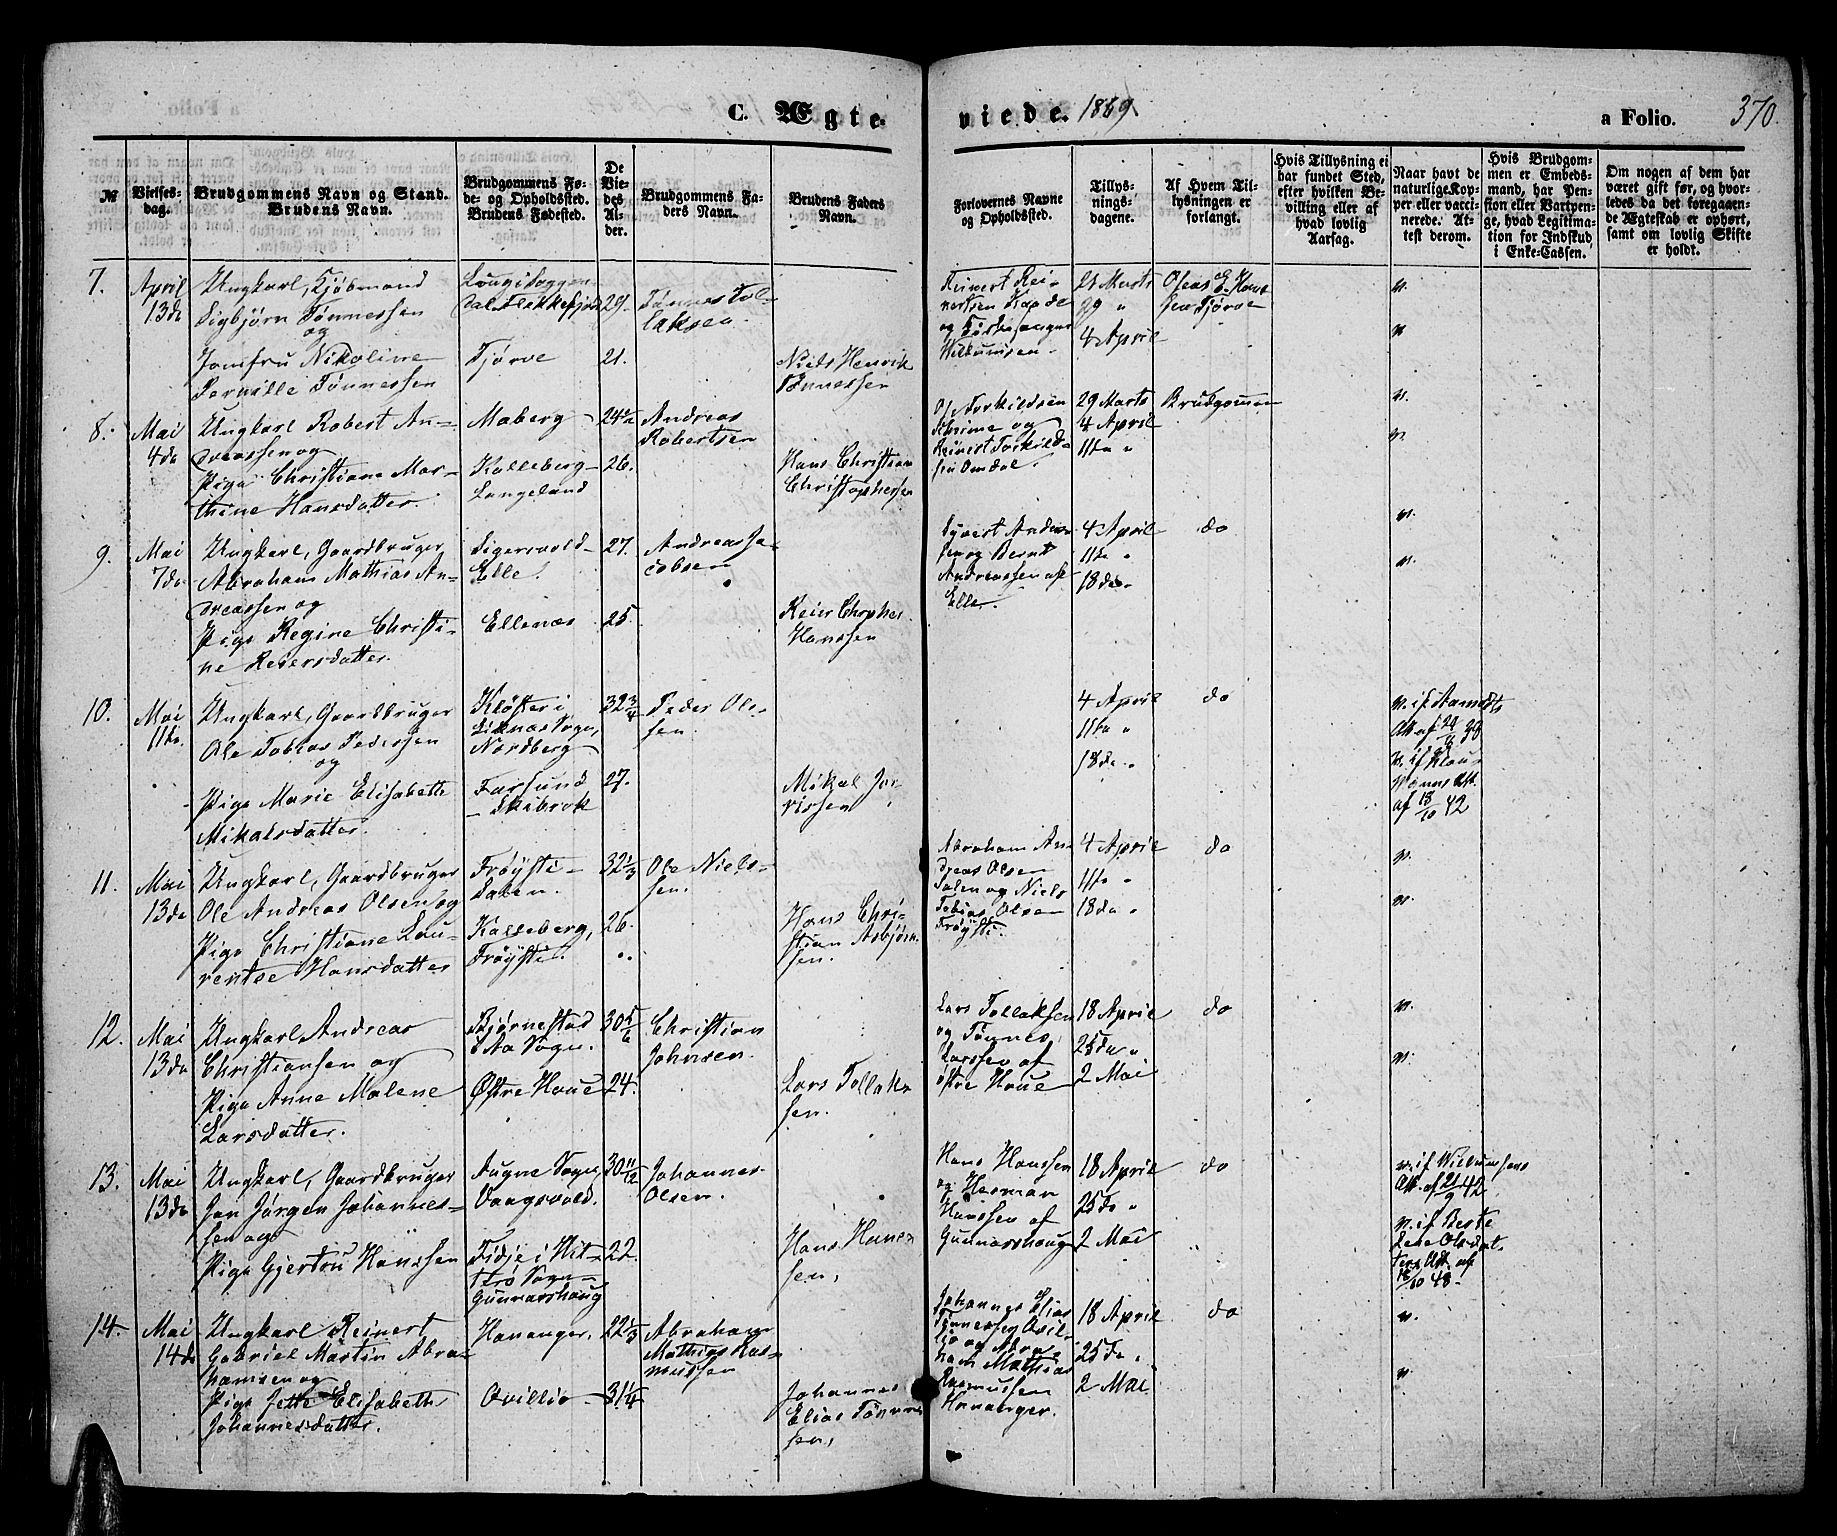 C. Ægte-
viede. 1869.
a Folio.
370
№
Vielses-
dag.
Brudgommens Navn og Stand.
Brudens Navn.
Brudgommens Fø-
de- og Opholdssted.
Brudens Fødested.
De
Vie-
des
Al-
der.
Brudgommens Fa-
ders Navn.
Brudens Faders
Navn.
Forlovernes Navne
og Opholdssted.
Tillys-
nings-
dagene.
Af Hvem Til-
lysningen er
forlangt.
Hvis Tillysning ei
har fundet Sted,
efter hvilken Be-
villing eller af
hvad lovlig
Aarsag.
Naar havt de
naturlige Kop-
per eller vacci-
nerede. At-
test derom.
Hvis Brudgom-
men er Embeds-
mand, har Pen-
sion eller Vartpen-
ge, hvad Legitima-
tion for Indskud
i Enke-Cassen.
Om nogen af dem har
været gift før, og hvor-
ledes da det foregaaen-
de Ægteskab er ophørt,
samt om lovlig Skifte
er holdt.
7.
April
13de
Ungkarl, Kjøbmand
Sigbjørn Tønnessen
og
Jomfru Nikoline
Pernille Tønnessen
Flekkefjord
Tjørve
29.
21.
Tønnes Tol-
laksen.
Niels Henrik
Tønnessen
Reinert Rei-
nertsen
og
21 Marts
29 "
4 April
Tjørve
v.
v.
8.
Mai
4de
Ungkarl Robert An-
dreassen og
Pige Christiane Mar-
thine Hansdatter.
Maberg
Kalleberg
Langeland
24
26.
Andreas
Robertsen
Hans Christian
Christophersen
Torkildsen
og
Reinert Torkild-
sen Omdal.
29 Marts
4 April
11te "
Brudgommen
v.
v.
9.
Mai
7de
Ungkarl, Gaardbruger
Abraham Mathias An-
dreassen og
Pige Regine Christi-
ne Reiersdatter.
Sigersvold
Elle.
Ellenæs
27.
25.
Andreas Ja-
cobsen
Reier
Hanssen
Syvert Andrea-
sen og Bernt
Andreassen af
Elle.
4 April
11te "
18de "
do
v.
v.
10.
Mai
11te
Ungkarl, Gaardbruger
Ole Tobias Pedersen
og
Pige Marie Elisabeth
Mikalsdatter.
Kløfter i
Liknæs Sogn,
Nordberg
Farsund
Skibrok
32 3/4
27.
Peder Ol-
sen.
Mikal
4 April
11te "
18de "
do
v. if
Att. af
v. if Klaus
Att.
af 18/10 42
11.
Mai
13de
Ungkarl, Gaardbruger
Ole Andreas Olsen og
Pige Christiane Lau-
rentse Hansdatter
Frøysti-
Dalen.
Kalleberg,
Frøysti.
32 1/3
26.
Ole Niels-
sen.
Hans Chri-
stian Asbjørn-
sen.
Abraham An-
dreas Olsen
Dalen og Niels
Tobias Olsen
Frøysti.
4 April
11te "
18de "
do
v.
v.
12.
Mai
13de
Ungkarl Andreas
Christiansen og
Pige Anne Malene
Larsdatter.
Bjørnestad
i Aa Sogn.
Østre Haue
30 5/6
24.
Christian
Johnsen.
Lars Tollak-
sen.
Lars Tollaksen
og Tønnes
Larssen af
østre Haue
18 April
25de "
2 Mai
do
v.
v.
13.
Mai
13de
Ungkarl, Gaardbruger
Jan Jørgen Johannes-
sen og
Pige Gjertru Hanssen
Augne Sogn,
Vaagsvold.
Fidje i Hit-
terø Sogn
Gunnarshaug
30 11/12
22.
Johannes
Olsen.
Hans Hans-
sen,
Hans Hanssen
og Herman
Hanssen af
Gunnarshaug
18 April
25de "
2 Mai
do
v. if
Att. af 21/9 42
v. if
Att. af
18/10 48.
14.
Mai
14de
Ungkarl Reinert
Gabriel Martin Abra-
hamsen og
Pige Jette Elisabeth
Johannesdatter.
Hananger.
Øvillio
22 1/3
31 1/4
Abraham
Mathias Ras-
mussen
Johannes
Elias Tønnes-
sen,
Johannes Elias
Tønnessen Øvil-
lio og Abra-
ham Mathias
Rasmussen
Hananger.
18 April
25de "
2 Mai
do
v.
v.